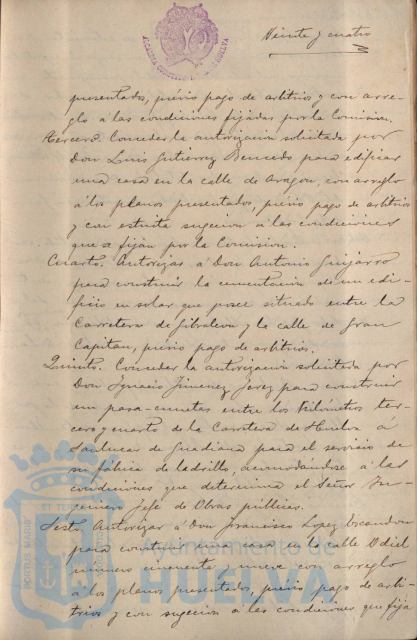 Veinte y cuatro
presentados, prévio pago de arbitrios y con arre-
glo á las condiciones fijadas por la Comision.
Tercero. Conceder la autorizacion solicitada por
Don Luis Gutierrez para edificar
una casa en la calle de Aragon, con arreglo
á los planos presentados, prévio pago de arbitrios
y con estricta sugecion á las condiciones
que se fijan por la Comision.
Cuarto. Autorizar á Don Antonio Guijarro
para construir la cimentacion de un edi-
ficio en solar que posee situado entre la
Carretera de Gibraleon y la calle de Gran
Capitan, prévio pago de arbitrios.
Quinto. Conceder la autorizacion solicitada por
Don Ignacio Jimenez Jerez para construir
un pasa-cunetas entre los Kilómetros ter-
cero y cuarto de la Carretera de Huelva á
Sanlucar de Guadiana para el servicio de
su fábrica de ladrillo, acomodándose á las
condiciones que determina el Señor Inge-
niero Jefe de Obras públicas.
Sesto. Autorizar á Don Francisco Lopez Escandon
para construir una casa en la calle Odiel
número cincuenta y nueve con arreglo
á los planos presentados, prévio pago de arbi-
trios y con sugecion á las condiciones que fija
Ayuntamiento de
HUELVA